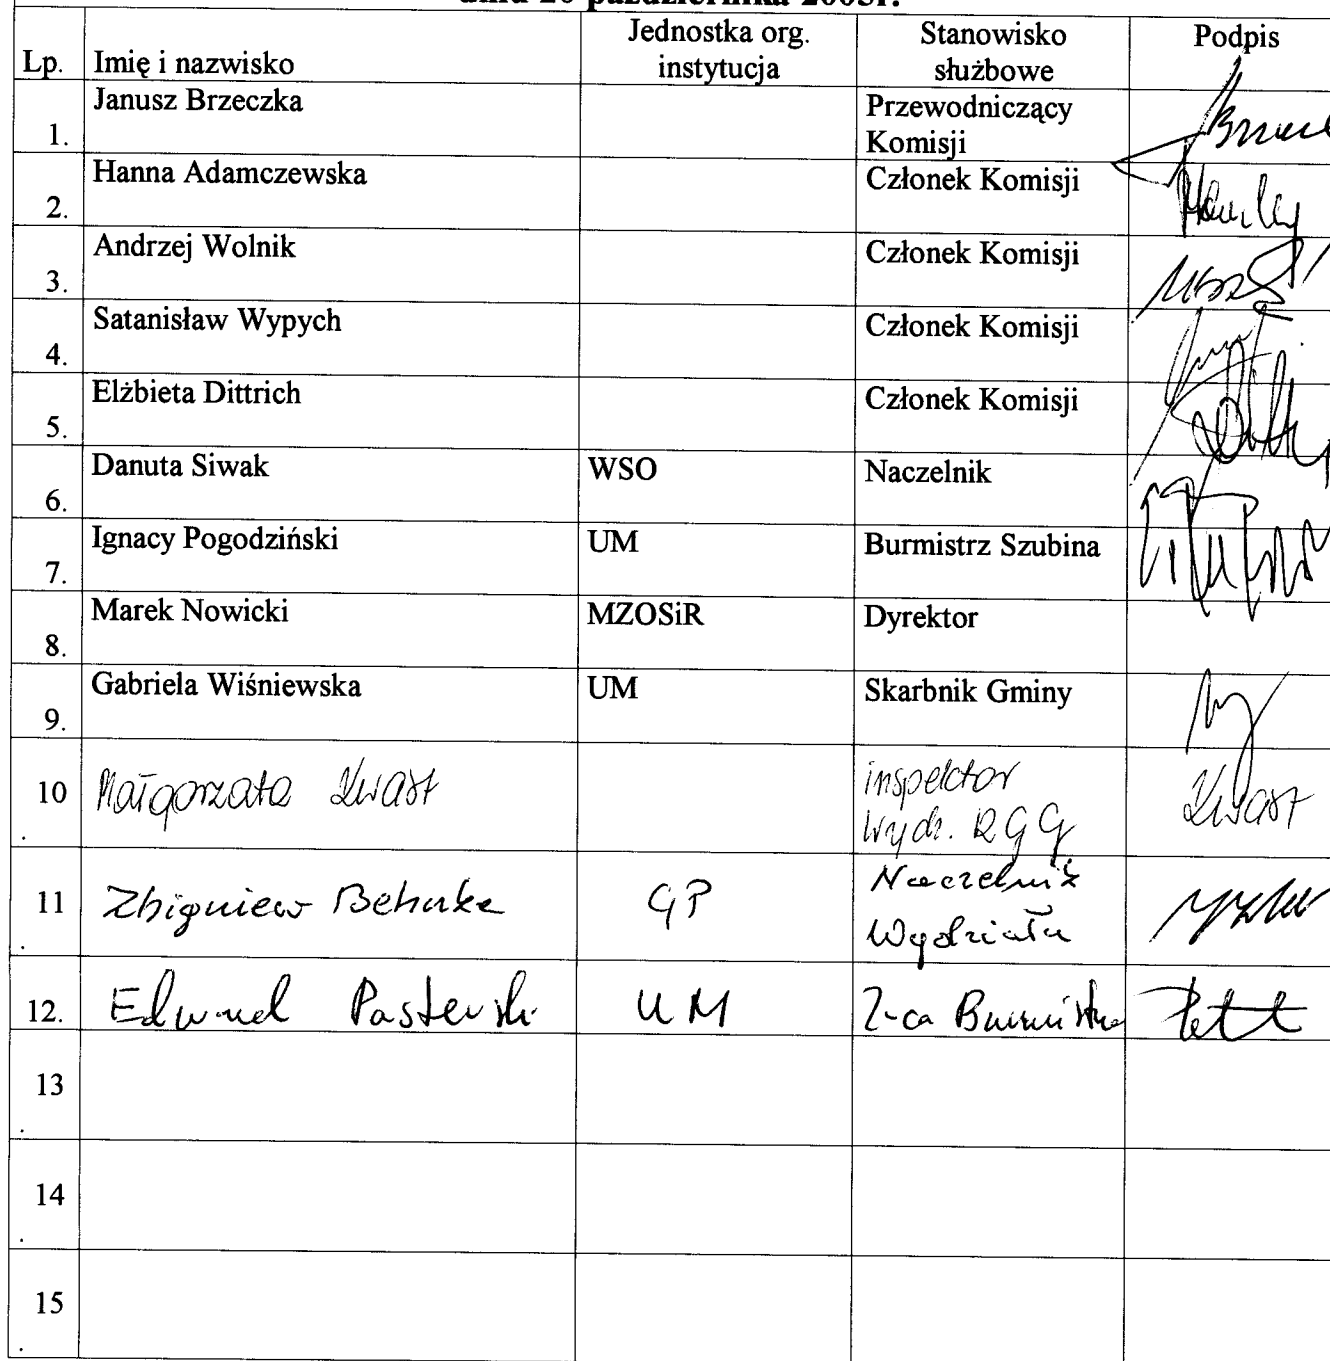 Jednostka org. Stanowisko Podpis
Lp. Imię i nazwisko instytucja służbowe
1. Janusz Brzeczka Przewodniczący
Komisji
2. Hanna Adamczewska Członek Komisji
3. Andrzej Wolnik Członek Komisji
4. Satanisław Wypych Członek Komisji
5. Elżbieta Dittrich Członek Komisji
6. Danuta Siwak WSO Naczelnik
7. Ignacy Pogodziński UM Burmistrz Szubina
8. Marek Nowicki MZOSiR Dyrektor
9. Gabriela Wiśniewska UM Skarbnik Gminy
10. Małgorzata Kwast inspektor Kwast
Wydz. RGG
11. Zbigniew Behnke GP Naczelnik
Wydziału
12. Edward Pasterski UM Z-ca Burmistrza
13.
14.
15.